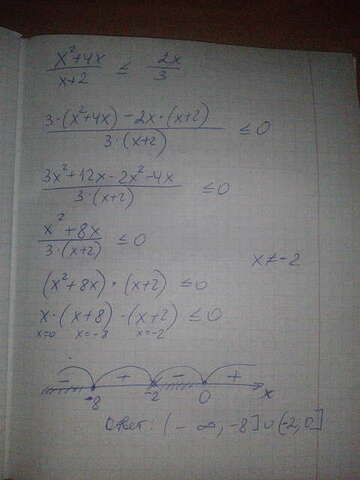 (x²+4x)/(x+2) ≤ 2x/3
(3·(x²+4x)-2x·(x+2))/(3·(x+2)) ≤ 0
(3x²+12x-2x²-4x)/(3·(x+2)) ≤ 0
(x²+8x)/(3·(x+2)) ≤ 0
(x²+8x)·(x+2) ≤ 0 x≠-2
x·(x+8)·(x+2) ≤ 0
x=0 x=-8 x=-2
- + - +
-8 -2 0 x
Ответ: (-∞, -8]∪(-2,0]